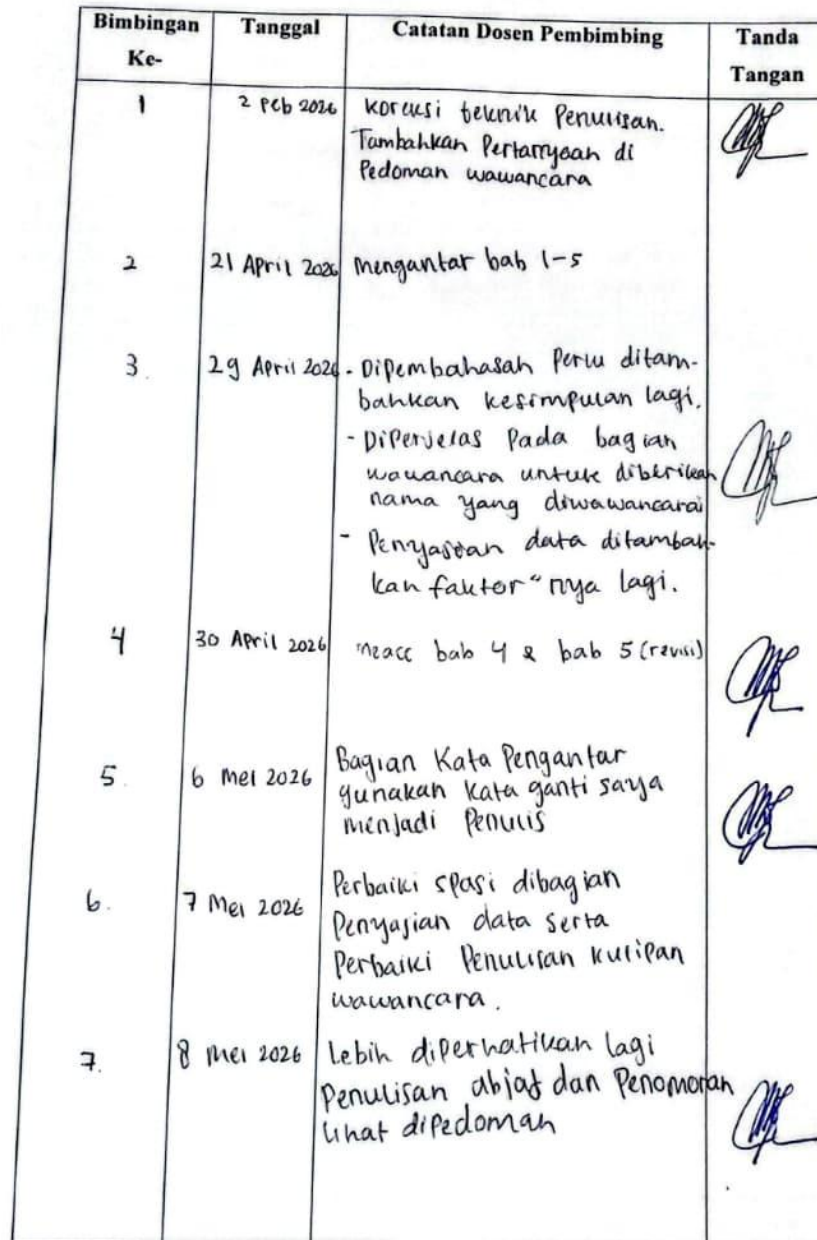 Bimbingan Ke-
Tanggal
Catatan Dosen Pembimbing
Tanda Tangan
1
2 Peb 2026
koreksi teknik Penulisan.
Tambahkan Pertanyaan di
Pedoman wawancara
2
21 April 2026
mengantar bab 1-5
3.
29 April 2026
- Dipembahasan Perlu ditam-
bahkan kesimpulan lagi.
- Diperjelas Pada bagian
wawancara untuk diberikan
nama yang diwawancarai
- Penyajian data ditambah-
kan faktor"nya lagi.
4
30 April 2026
meacc bab 4 & bab 5 (revisi)
5.
6 Mei 2026
Bagian Kata Pengantar
gunakan kata ganti saya
menjadi Penulis
6.
7 Mei 2026
Perbaiki spasi dibagian
Penyajian data serta
Perbaiki Penulisan kutipan
wawancara.
7.
8 Mei 2026
Lebih diperhatikan lagi
Penulisan abjat dan Penomoran
lihat dipedoman